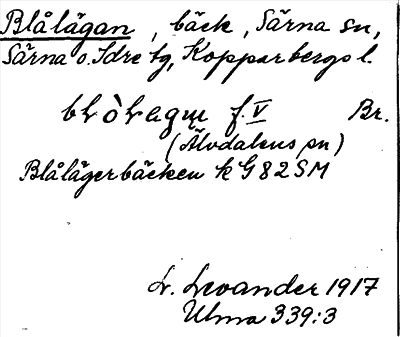 Blålägan, bäck, Särna sn,
Särna o. Idre tg, Kopparbergs l.
f. V Br.
(Älvdalens sn)
Blålägerbäcken k G82SM
L. Levander 1917
Ulma 339:3